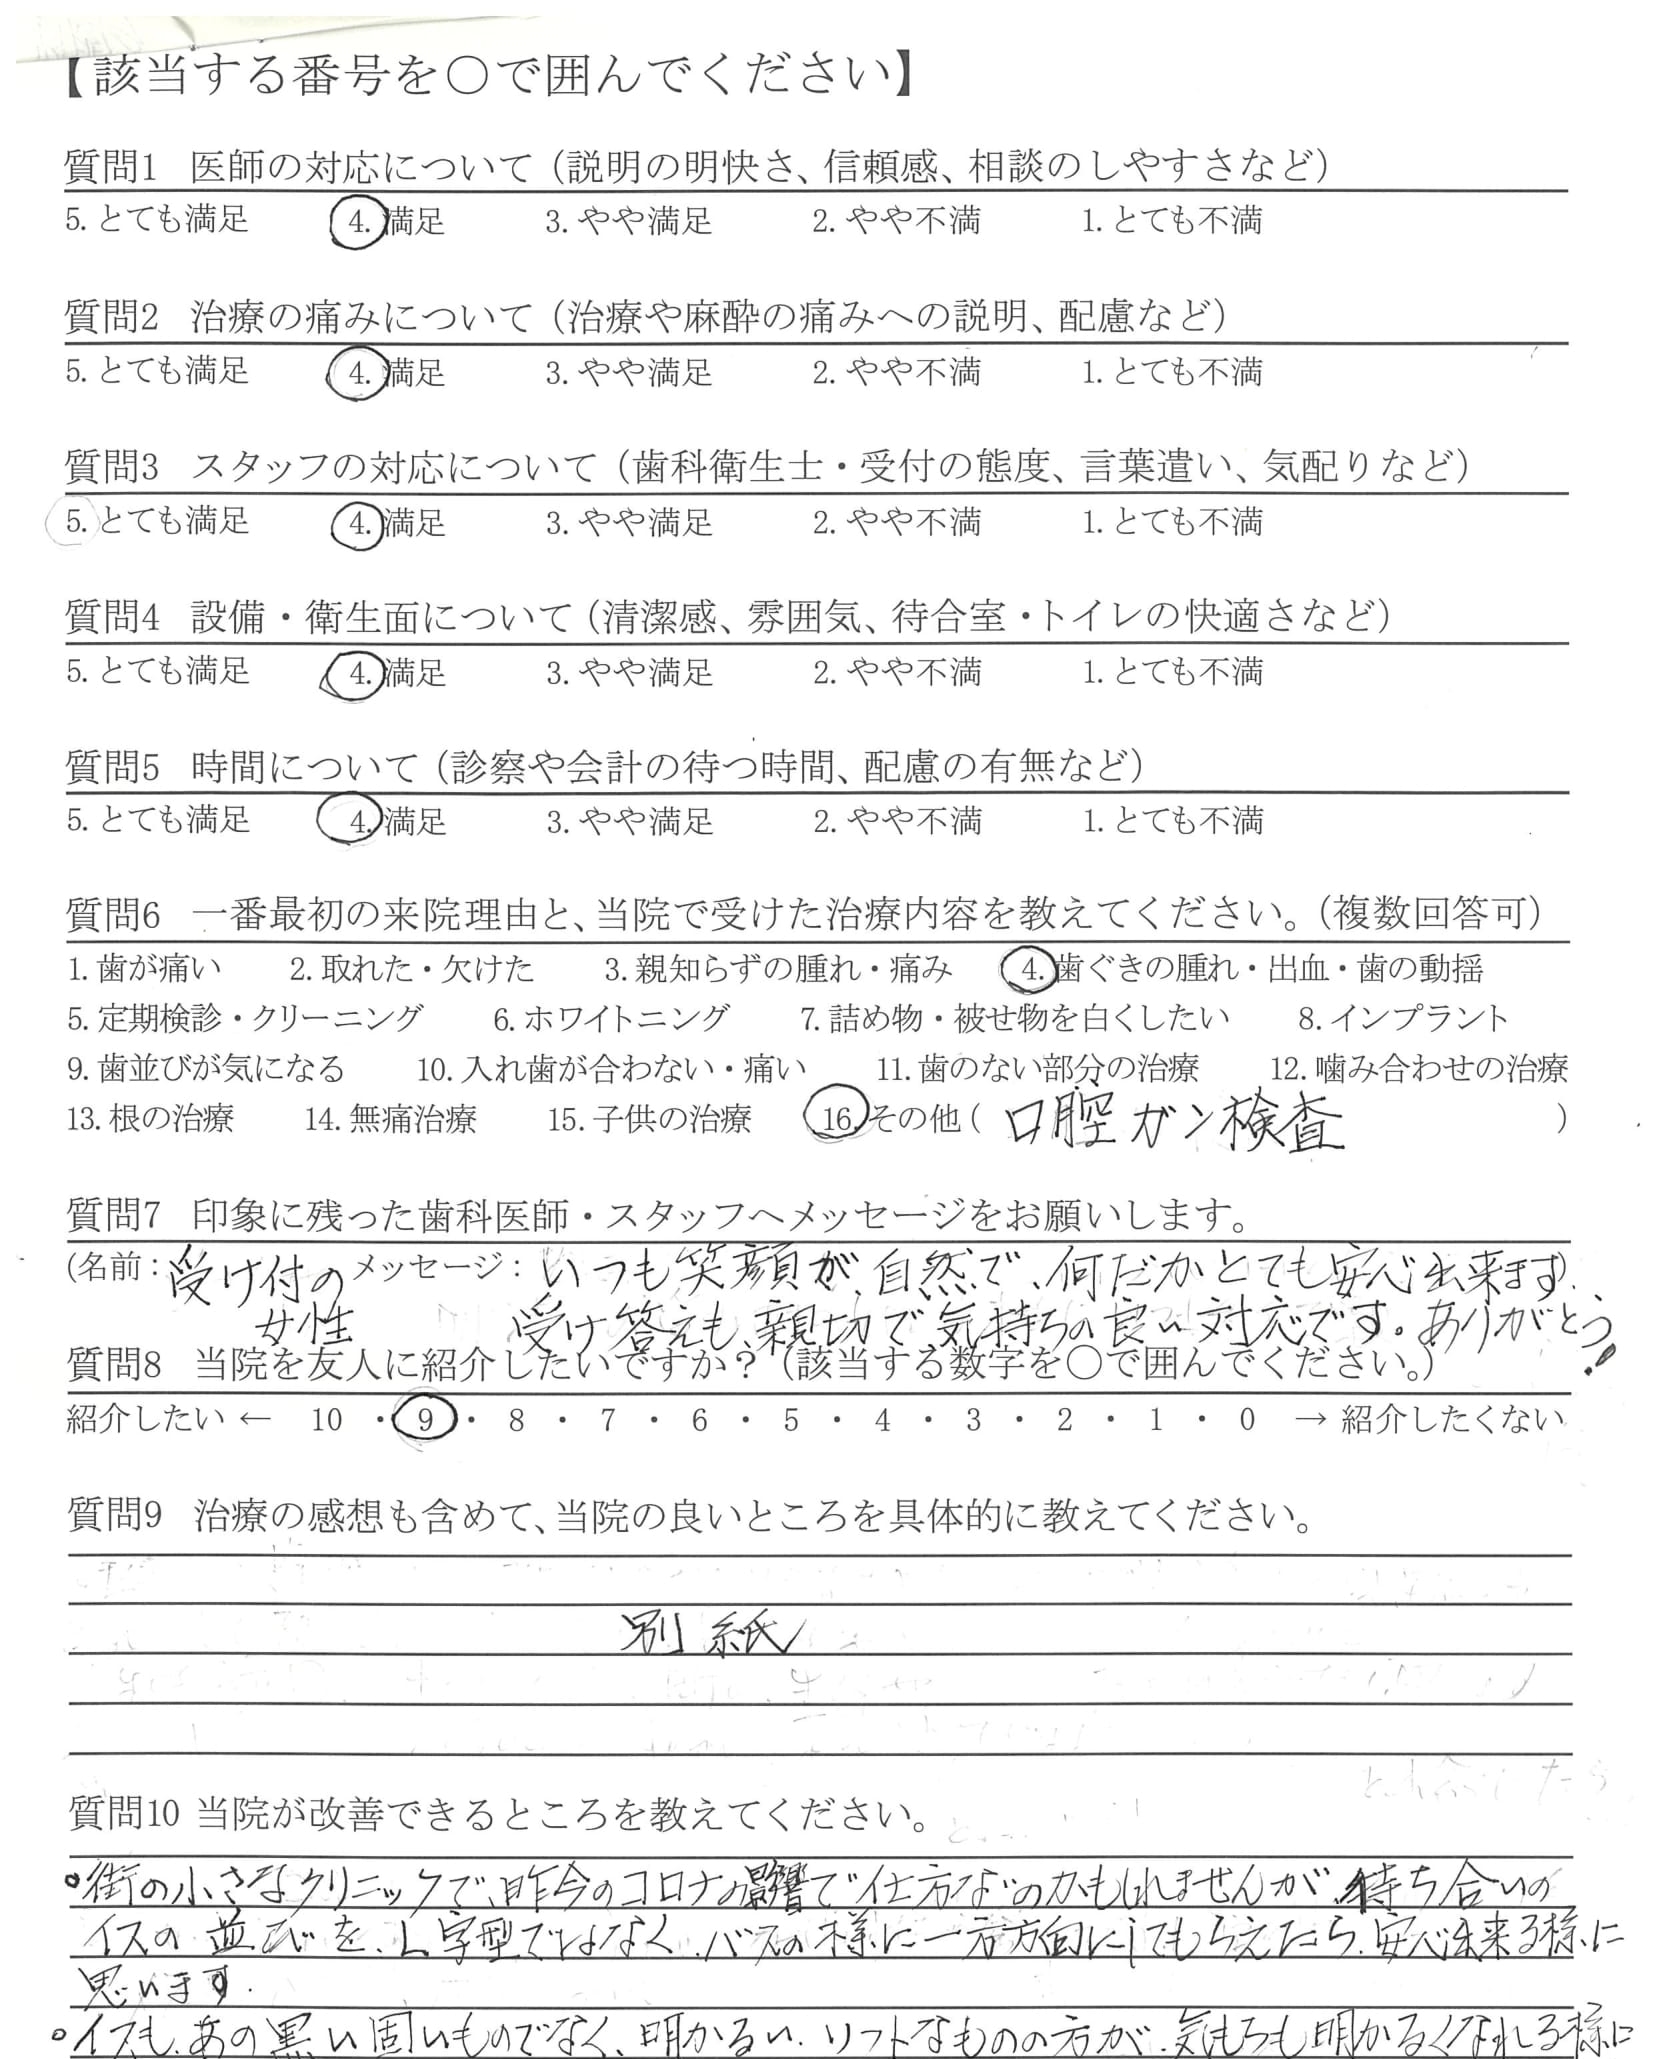 【該当する番号を〇で囲んでください】
質問1 医師の対応について（説明の明快さ、信頼感、相談のしやすさなど）
5. とても満足 4. 満足 3. やや満足 2. やや不満 1. とても不満
質問2 治療の痛みについて（治療や麻酔の痛みへの説明、配慮など）
5. とても満足 4. 満足 3. やや満足 2. やや不満 1. とても不満
質問3 スタッフの対応について（歯科衛生士・受付の態度、言葉遣い、気配りなど）
5. とても満足 4. 満足 3. やや満足 2. やや不満 1. とても不満
質問4 設備・衛生面について（清潔感、雰囲気、待合室・トイレの快適さなど）
5. とても満足 4. 満足 3. やや満足 2. やや不満 1. とても不満
質問5 時間について（診察や会計の待つ時間、配慮の有無など）
5. とても満足 4. 満足 3. やや満足 2. やや不満 1. とても不満
質問6 一番最初の来院理由と、当院で受けた治療内容を教えてください。（複数回答可）
1. 歯が痛い 2. 取れた・欠けた 3. 親知らずの腫れ・痛み 4. 歯ぐきの腫れ・出血・歯の動揺
5. 定期検診・クリーニング 6. ホワイトニング 7. 詰め物・被せ物を白くしたい 8. インプラント
9. 歯並びが気になる 10. 入れ歯が合わない・痛い 11. 歯のない部分の治療 12. 噛み合わせの治療
13. 根の治療 14. 無痛治療 15. 子供の治療 16. その他（ 口腔ガン検査 ）
質問7 印象に残った歯科医師・スタッフへメッセージをお願いします。
(名前：受け付の メッセージ：いつも笑顔が、自然で、何だかとても安心出来ます。
女性 受け答えも、親切で、気持ちの良い対応です。ありがとう！
質問8 当院を友人に紹介したいですか？（該当する数字を〇で囲んでください。）
紹介したい ← 10 ・ 9 ・ 8 ・ 7 ・ 6 ・ 5 ・ 4 ・ 3 ・ 2 ・ 1 ・ 0 → 紹介したくない
質問9 治療の感想も含めて、当院の良いところを具体的に教えてください。
別紙
質問10 当院が改善できるところを教えてください。
。街の小さなクリニックで、昨今のコロナの影響で仕方ないのかもしれませんが、待ち合いの
イスの並びを、L字型ではなく、バスの様に一方方向にしてもらえたら、安心出来る様に
思います。
。イスも、あの黒い固いものでなく、明かるい、ソフトなものの方が、気もちも明かるくなれる様に